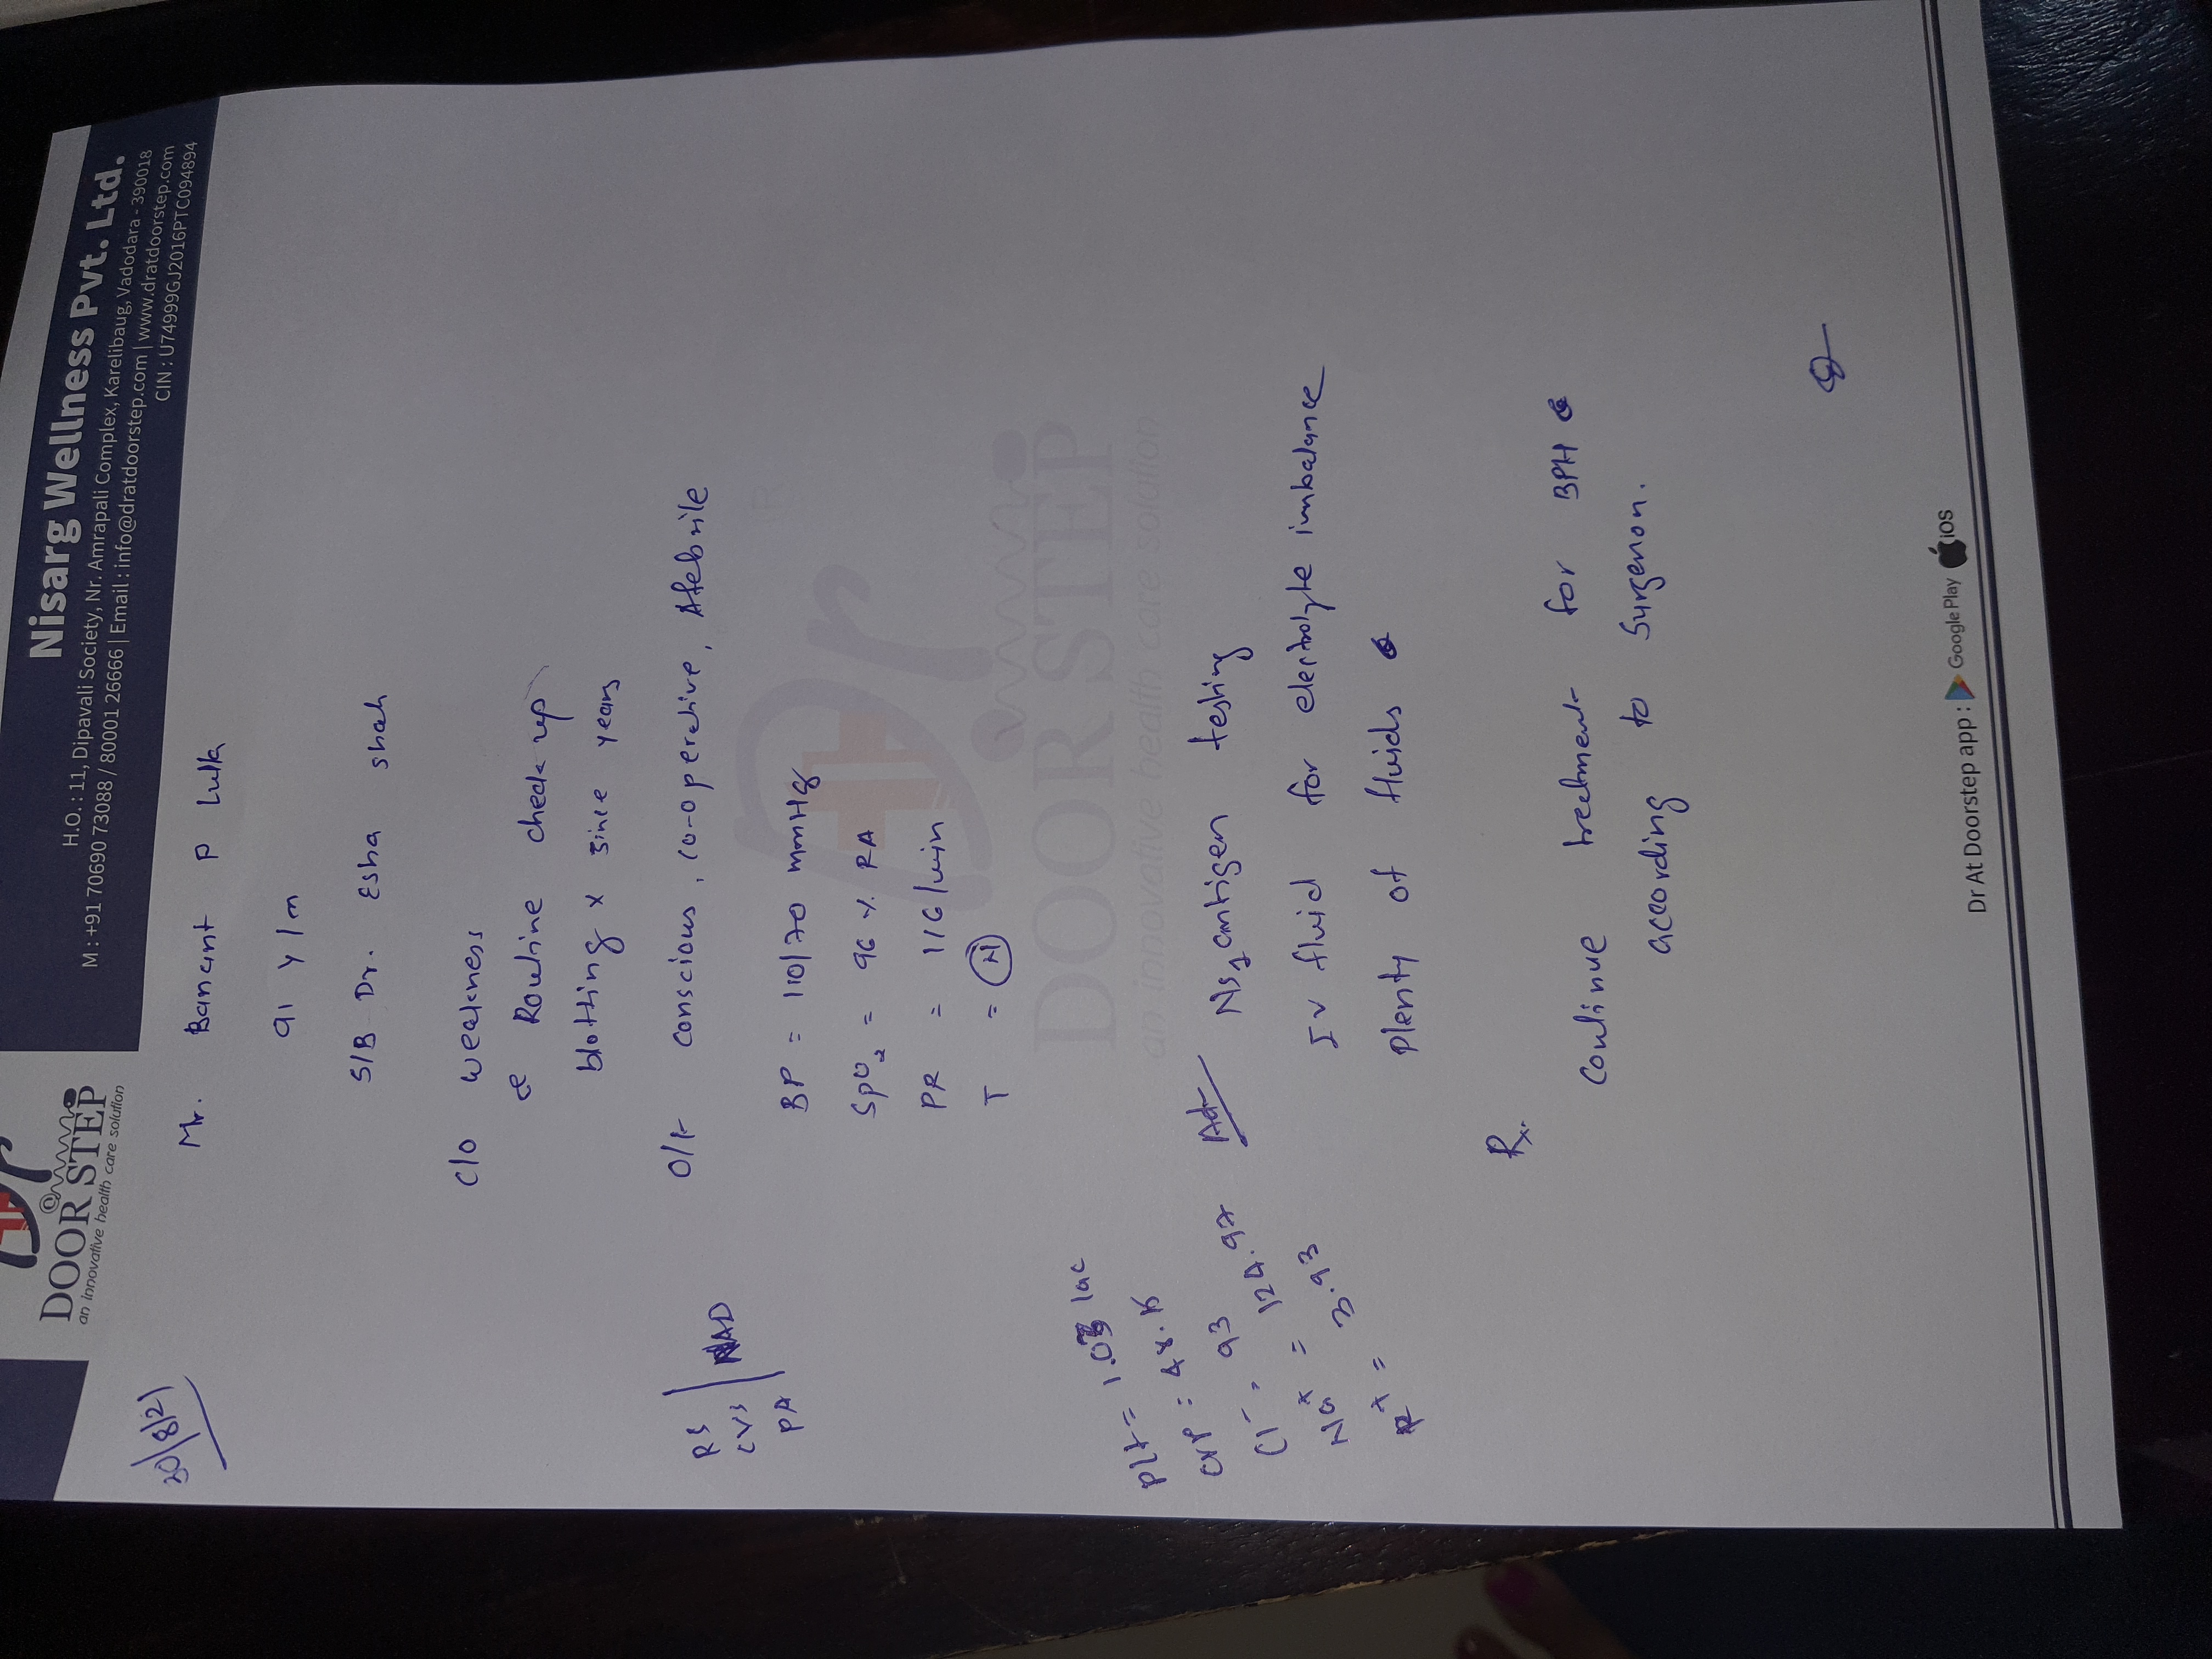 Dr
@
DOOR STEP
an innovative health care solution
Nisarg Wellness Pvt. Ltd.
H.O. : 11, Dipavali Society, Nr. Amrapali Complex, Karelibaug, Vadodara - 390018
M : +91 70690 73088 / 80001 26666 | Email : info@dratdoorstep.com | www.dratdoorstep.com
CIN : U74999GJ2016PTC094894
30/8/21
Mr. Banant P Lulla
91 Y/m
S/B Dr. Esha Shah
C/o weakness
& Routine check up
blotting x since years
O/E conscious, co-operative, Afebrile
RS
CVS NAD
PA
BP = 110/70 mmHg
SpO2 = 96 % RA
PR = 116/min
T = N
Dr
DOOR STEP
an innovative health care solution
Plt = 1.03 lac
CRP = 48.15
Cl- = 93
Na+ = 124.97
K+ = 3.93
Adv
NS1 antigen testing
IV fluid for electrolyte imbalance
Plenty of fluids
Rx.
Continue treetment for BPH
according to Surgenon.
Dr At Doorstep app : Google Play iOS